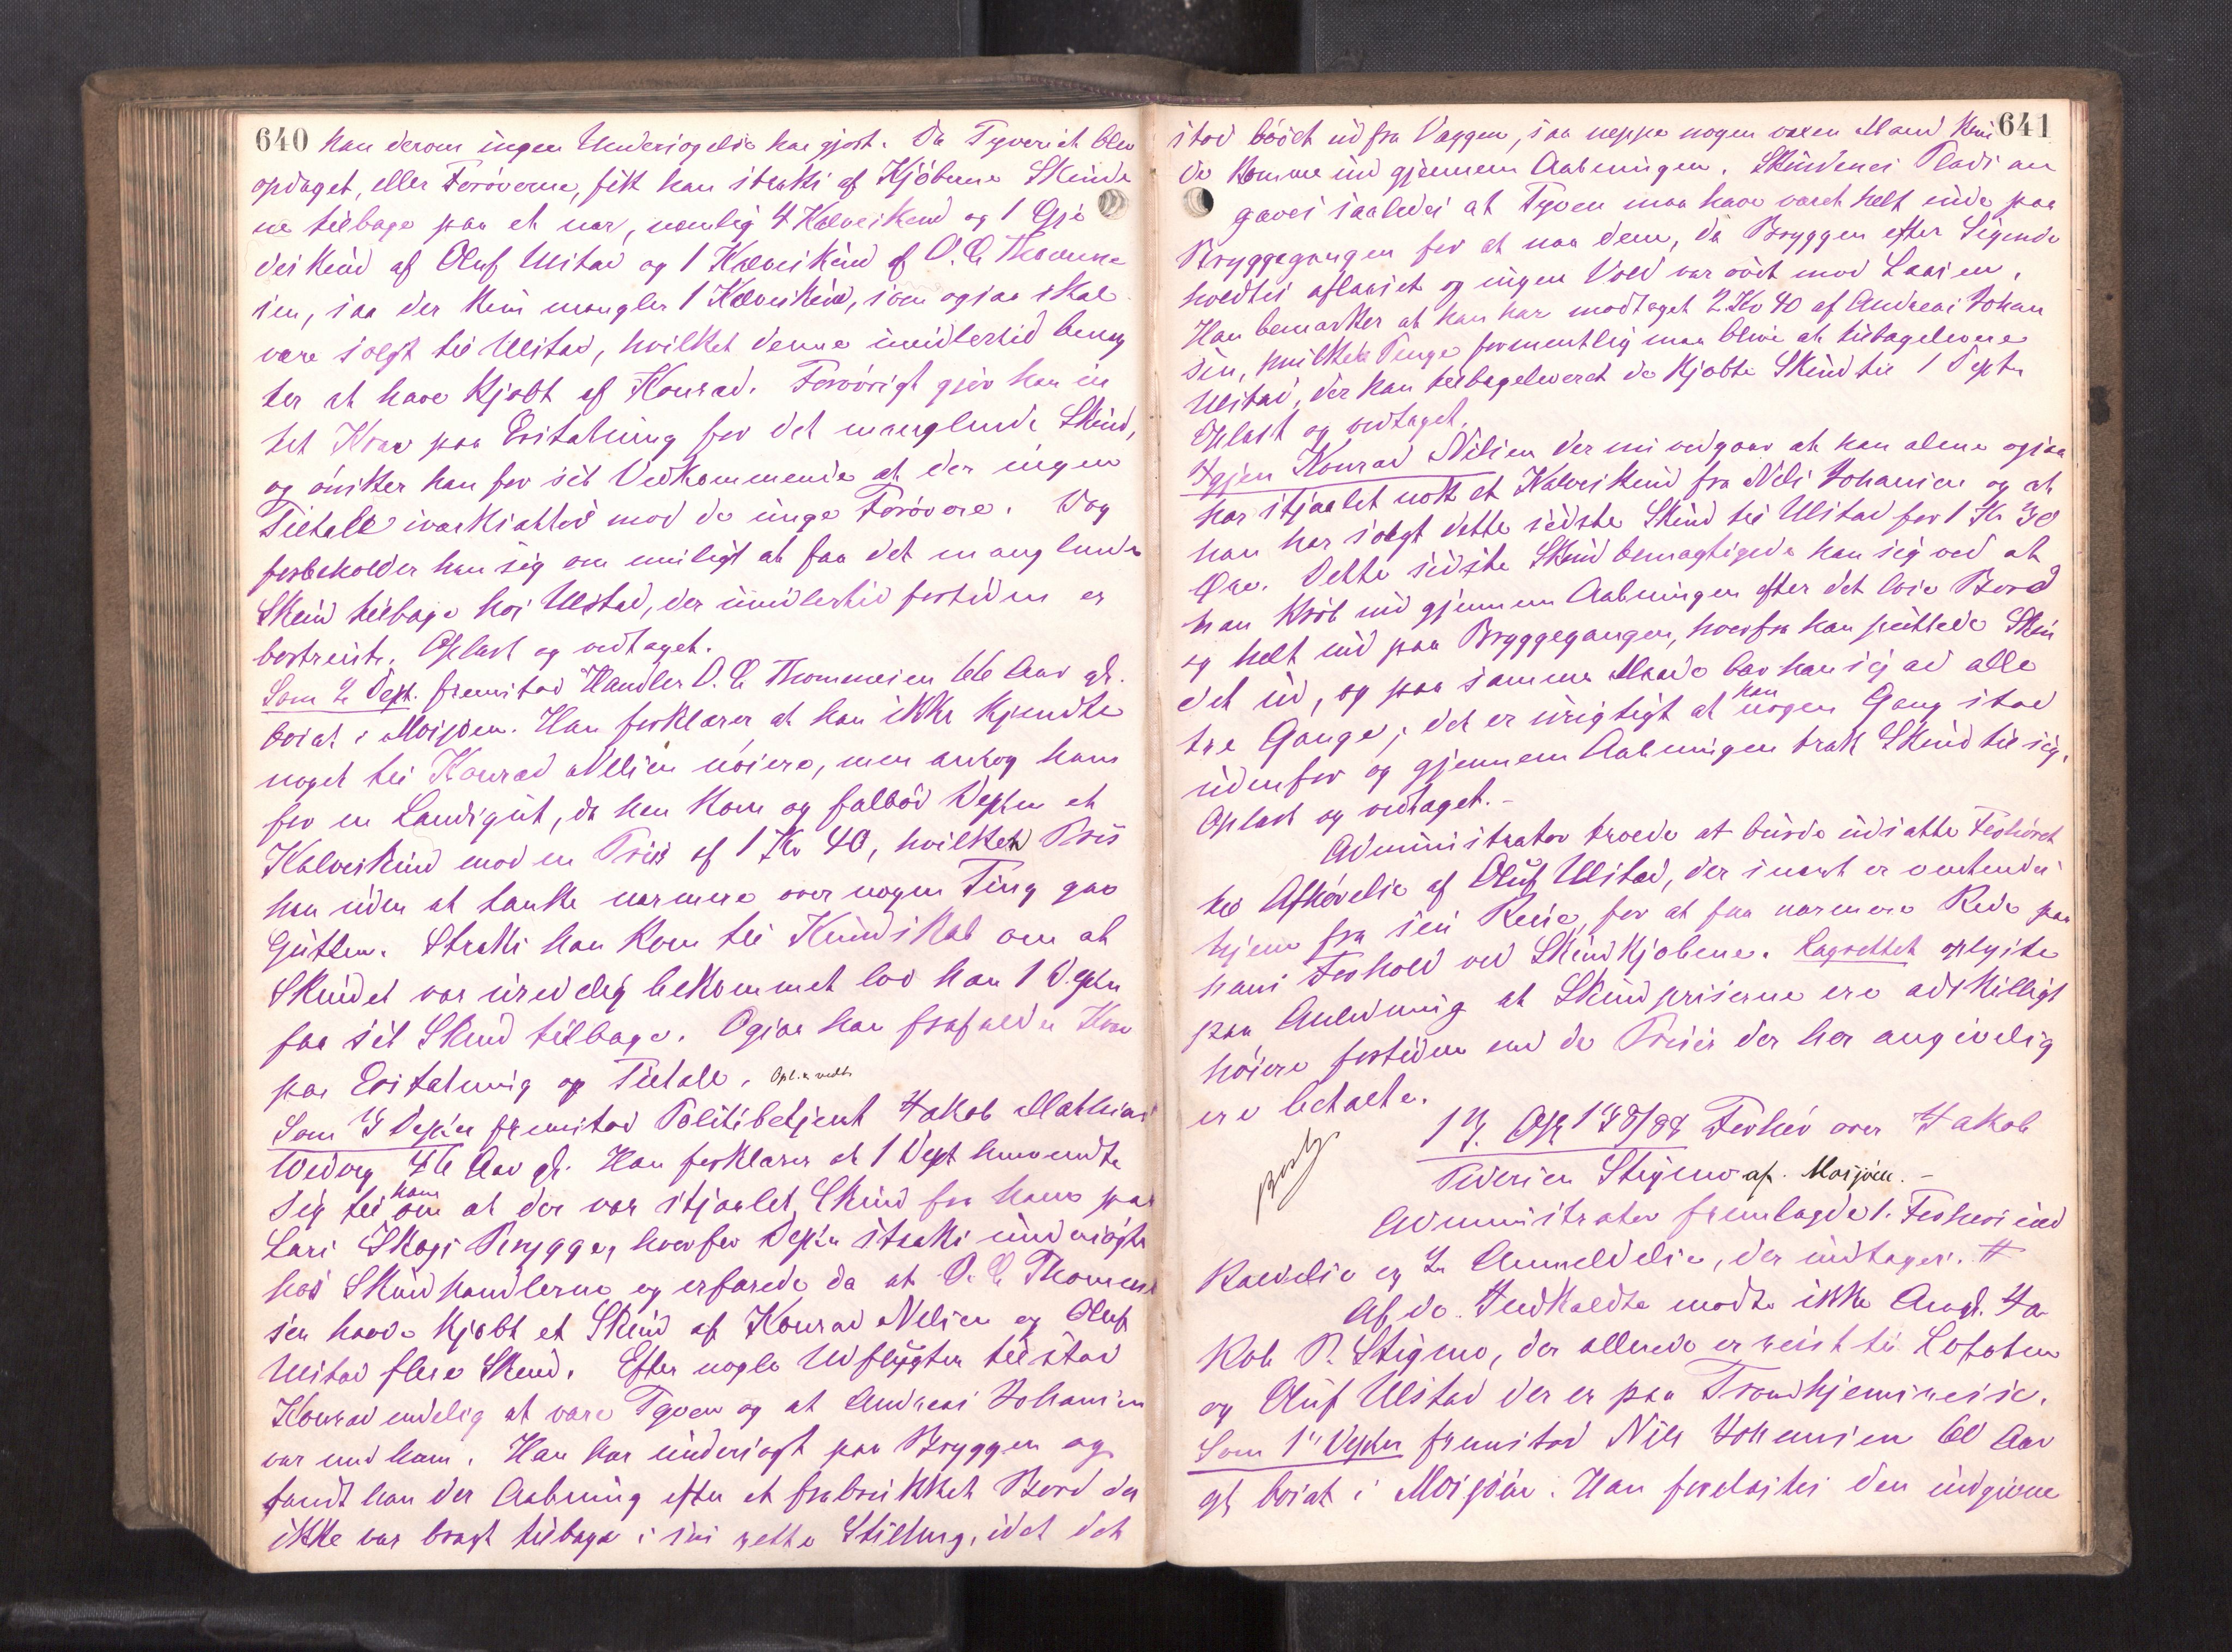 640 han derom ingen Undersøgelse har gjort. Da Tyveriet blev
opdaget, eller Forøverne, fik han straks af Kjøberne Skinde
ne tilbage paa et nær, nemlig 4 Kalveskind og 1 Gje
deskind af Oluf Ulstad og 1 Kalveskind af O. C. Thommes
sen, saa der kun mangler 1 Kalveskind, som ogsaa skal
være solgt til Ulstad, hvilket denne imidlertid beneg
ter at have kjøbt af Konrad. Forøvrigt gjør han in
tet Krav paa Erstatning for det manglende Skind,
og ønsker han for sit Vedkommende at der ingen
Tiltale iværksættes mod de unge Forøvere. Dog
forbeholder han sig om muligt at faa det manglende
Skind tilbage hos Ulstad, der imidlertid fortiden er
bortreist. Oplæst og vedtaget.
Som 2 Dept. fremstod Handler O. C. Thommesen 66 Aar gl.
bosat i Mosjøen. Han forklarer at han ikke kjendte
noget til Konrad Nilsen nøiere, men antog ham
for en Landsgut, da han kom og falbød Depten et
Kalveskind mod en Pris af 1 Kr 40, hvilken Pris
han uden at tænke nærmere over nogen Ting gav
Gutten. Straks han kom til Kundskab om at
Skindet var uredelig bekommet lod han 1 Depten
faa sit Skind tilbage. Ogsaa han frafalder Krav
paa Erstatning og Tiltale. Opl. & vedt.
Som 3 Dept'en fremstod Politibetjent Jakob Mathias
Wedvig 46 Aar gl. Han forklarer at 1 Dept henvendte
sig til ham om at der var stjaalet Skind fra ham paa
Lars Skogs Brygge, hvorfor Dep'en straks undersøgte
hos Skindhandlerne og erfarede da at O. C. Thommes
sen havde kjøbt et Skind af Konrad Nilsen og Oluf
Ulstad flere Skind. Efter nogle Udflugter tilstod
Konrad endelig at være Tyven og at Andreas Johansen
var med ham. Han har undersøgt paa Bryggen og
fandt han der Aabning efter et frabrukket Bord der
ikke var bragt tilbage i sin rette Stilling, idet det
641
stod brødt ud fra Væggen, saa neppe nogen voxen Mand kun
de komme ind gjennem Aabningen. Skindenes Plads an
gaves saaledes at Tyven maa have været helt inde paa
Bryggegangen for at naa dem, da Bryggen efter Sigende
holdtes aflaaset og ingen Vold var øvet mod Laasen.
Han bemærker at han har modtaget 2 Kr 40 af Andreas Johan
sen, hvilke Penge formentlig maa blive at tilbagelevere
Ulstad, der har tilbageleveret de kjøbte Skind til 1 Depten
Oplæst og vedtaget.
Igjen Konrad Nilsen der nu vedgaar at han alene ogsaa
har stjaalet nok et Kalveskind fra Nils Johansen og at
han har solgt dette sidste Skind til Ulstad for 1 Kr 30
Øre. Dette sidste Skind bemægtigede han sig ved at
han krøb ind gjennem Aabningen efter det løse Bord
og helt ind paa Bryggegangen, hvorfra han puttede Skin
det ud, og paa samme Maade bar han sig ad alle
tre Gange; det er urigtigt at han nogen Gang stod
udenfor og gjennem Aabningen trak Skind til sig.
Oplæst og vedtaget.-
Administrator troede at burde udsætte Forhøret
til Afhørelse af Oluf Ulstad, der snart er ventendes
hjem fra sin Reise, for at faa nærmere Rede paa
hans Forhold ved Skindkjøbene. Lagrettet oplyste
paa Anledning at Skindpriserne ere adskilligt
høiere fortiden end de Priser der her angivelig
ere betalte.
17. Opt 138/88 Forhør over Jakob
Pedersen Stigmo af. Mosjøen.-
Administrator fremlagde 1. Forhørsind
kaldelse og 2 Anmeldelse, der indtages. #
Af de Indkaldte mødte ikke Arrest. Ja
kob P. Stigmo, der allerede er reist til Lofoten
og Oluf Ulstad der er paa Trondhjemsreise.
Som 1" Depten fremstod Nils Johansen 60 Aar
gl bosat i Mosjøen. Han forelæstes den indgivne